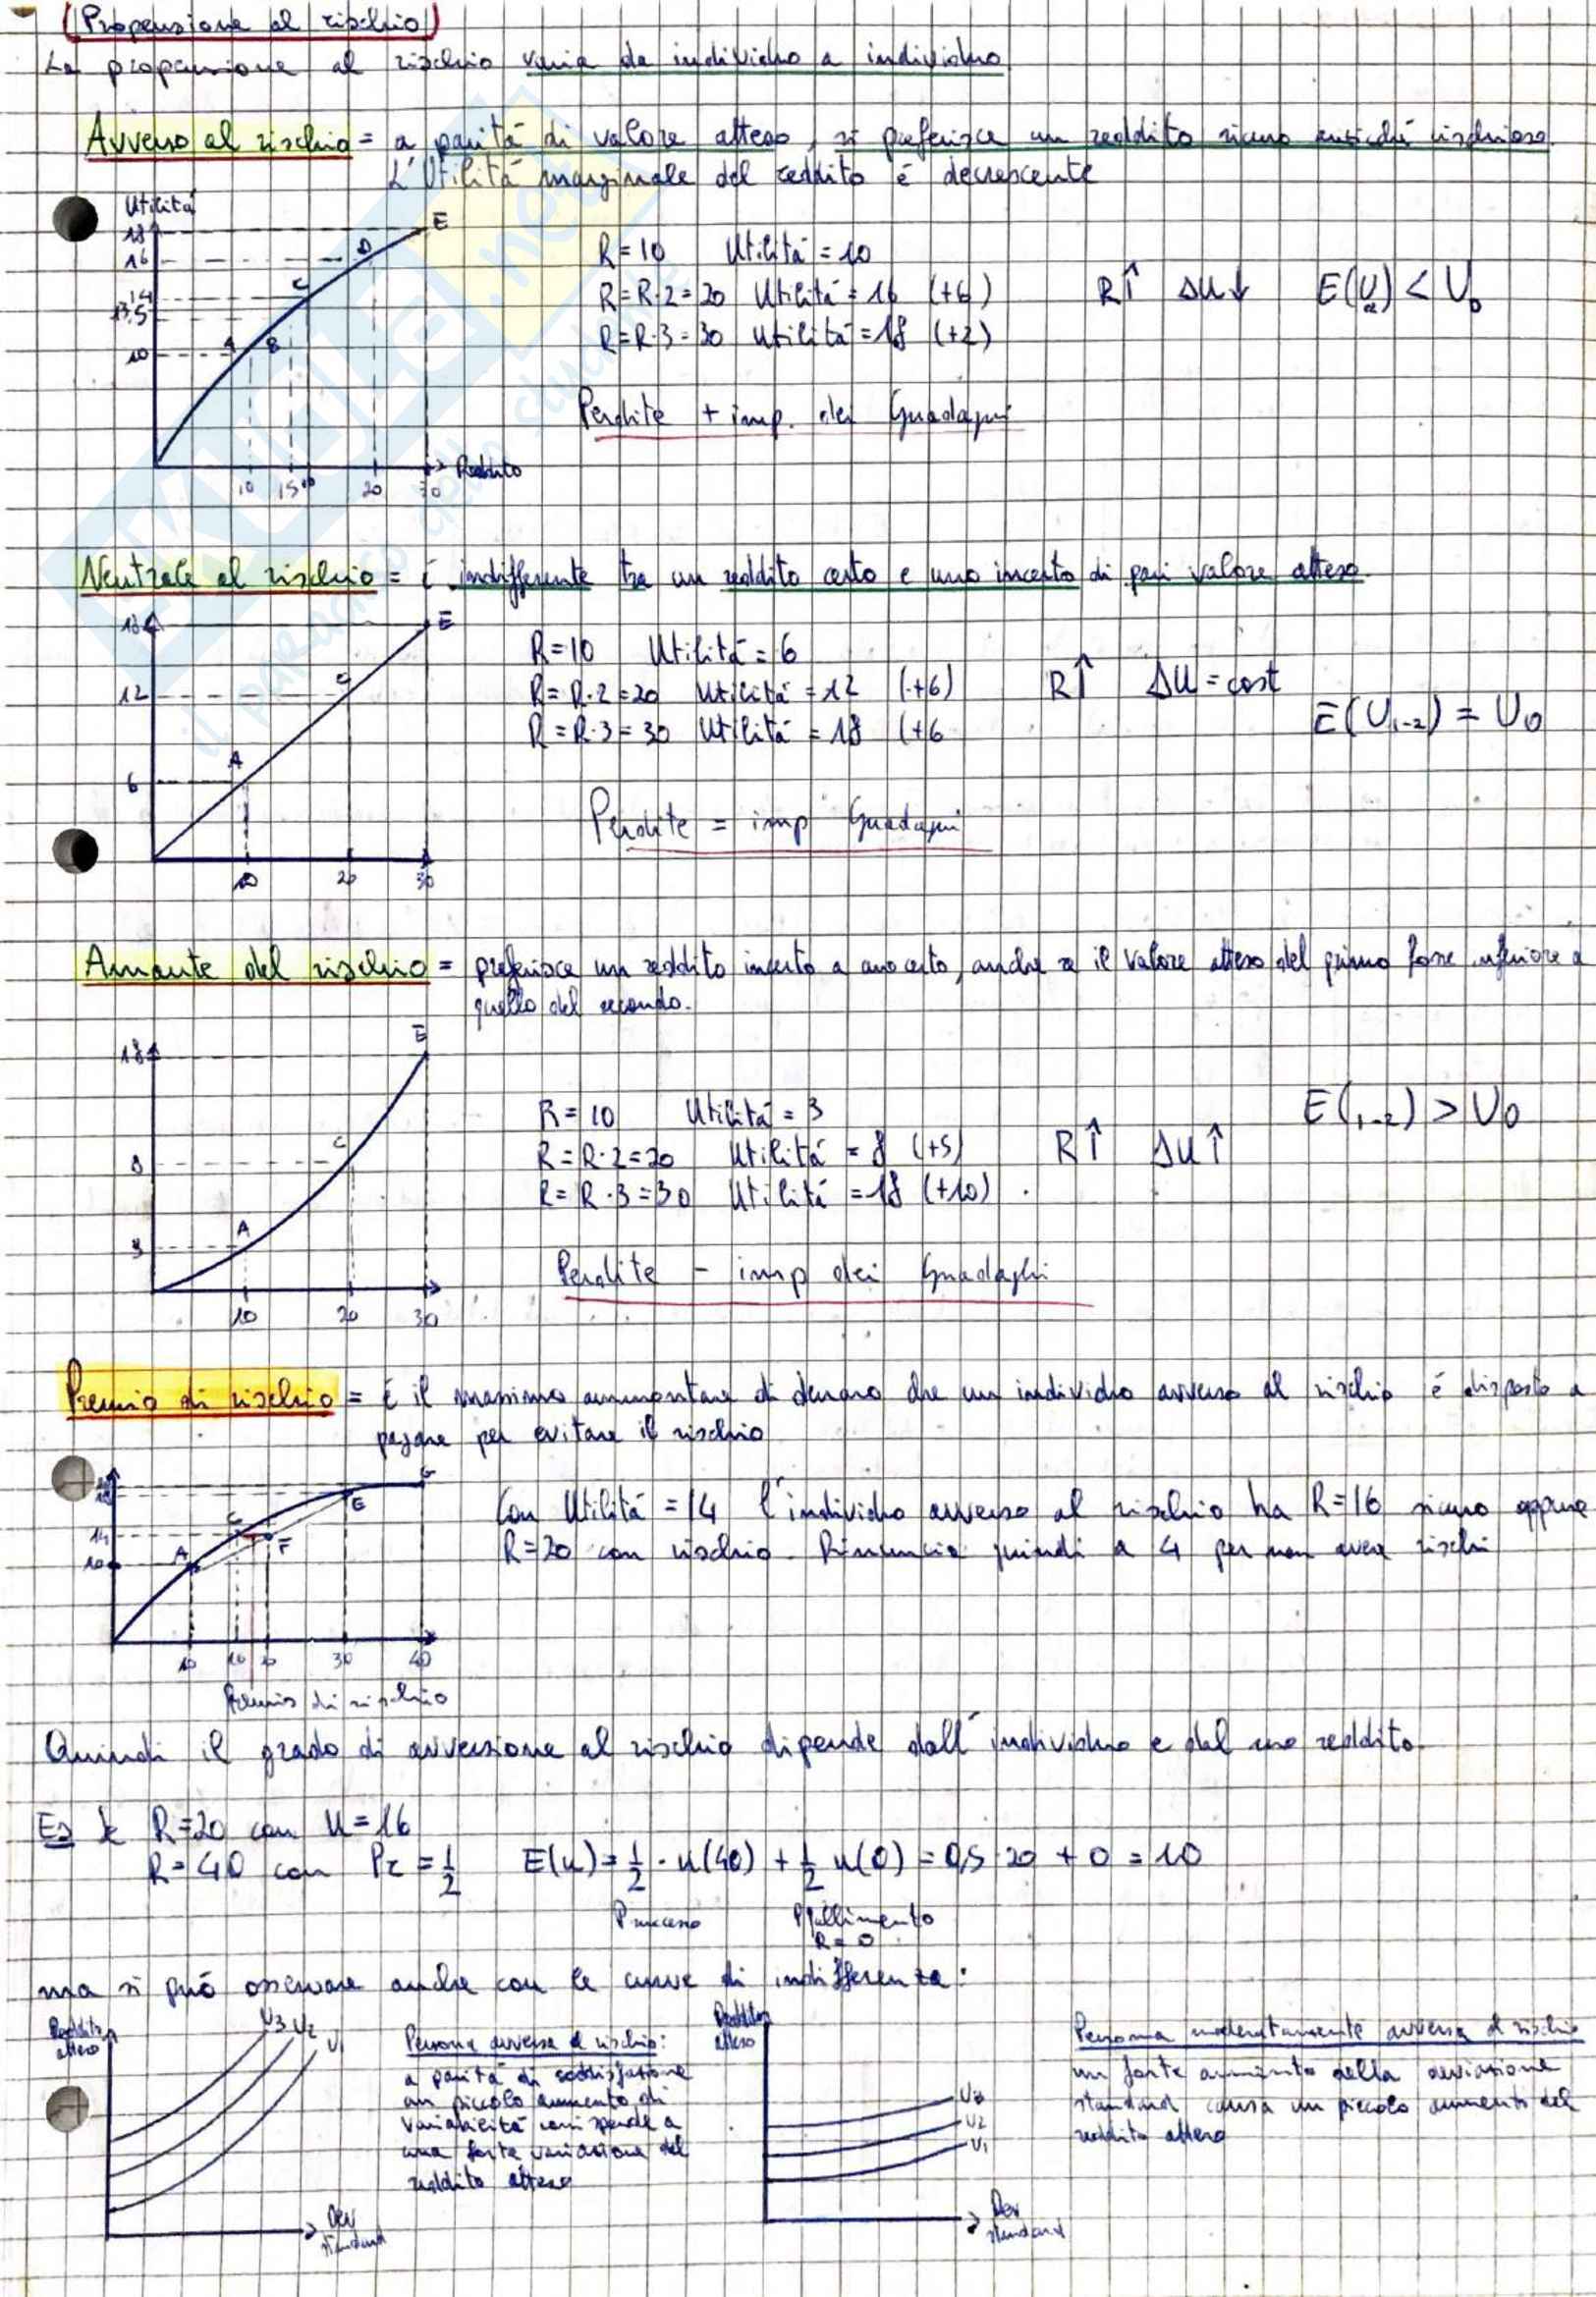 Propensione al rischio
La propensione al rischio varia da individuo a individuo
Avverso al rischio = a parità di valore atteso, si preferisce un reddito sicuro anziché rischioso.
L'Utilità marginale del reddito è decrescente
Utilità
18
16
14
13,5
10
A
B
C
D
E
10 15 16 20 30
Reddito
R=10 Utilità = 10
R=R·2=20 Utilità = 16 (+6)
R=R·3=30 Utilità = 18 (+2)
R↑ ΔU↓ E(U2) < U0
Perdite + imp. dei Guadagni
Neutrale al rischio = è indifferente tra un reddito certo e uno incerto di pari valore atteso
18
12
6
A
C
E
10 20 30
R=10 Utilità = 6
R=R·2=20 Utilità = 12 (+6)
R=R·3=30 Utilità = 18 (+6
R↑ ΔU = cost
E(U1-2) = U0
Perdite = imp Guadagni
Amante del rischio = preferisce un reddito incerto a uno certo, anche se il valore atteso del primo fosse inferiore a
quello del secondo.
18
8
3
A
C
E
10 20 30
R=10 Utilità = 3
R=R·2=20 Utilità = 8 (+5)
R=R·3=30 Utilità = 18 (+10)
R↑ ΔU↑
E(1-2) > U0
Perdite - imp dei Guadaghi
Premio di rischio = È il massimo ammontare di denaro che un individuo avverso al rischio è disposto a
pagare per evitare il rischio
20
18
14
10
A
C
F
E
G
10 16 20 30 40
Premio di rischio
Con Utilità = 14 l'individuo avverso al rischio ha R=16 sicuro oppure
R=20 con rischio. Rinuncia quindi a 4 per non avere rischi
Quindi il grado di avversione al rischio dipende dall'individuo e dal suo reddito.
Es R=20 con U=16
R=40 con Pr = 1/2 E(u) = 1/2 · u(40) + 1/2 u(0) = 0,5 · 20 + 0 = 10
Psuccesso Pfallimento
R=0
ma si può osservare anche con le curve di indifferenza:
Reddito
atteso
U3 U2
U1
Dev
standard
Persona avversa al rischio:
a parità di soddisfazione
un piccolo aumento di
variabilità corrisponde a
una forte variazione del
reddito atteso
Reddito
atteso
U3
U2
U1
Dev
standard
Persona moderatamente avversa al rischio
un forte aumento della deviazione
standard causa un piccolo aumento del
reddito atteso
.net
il paradiso dello studente